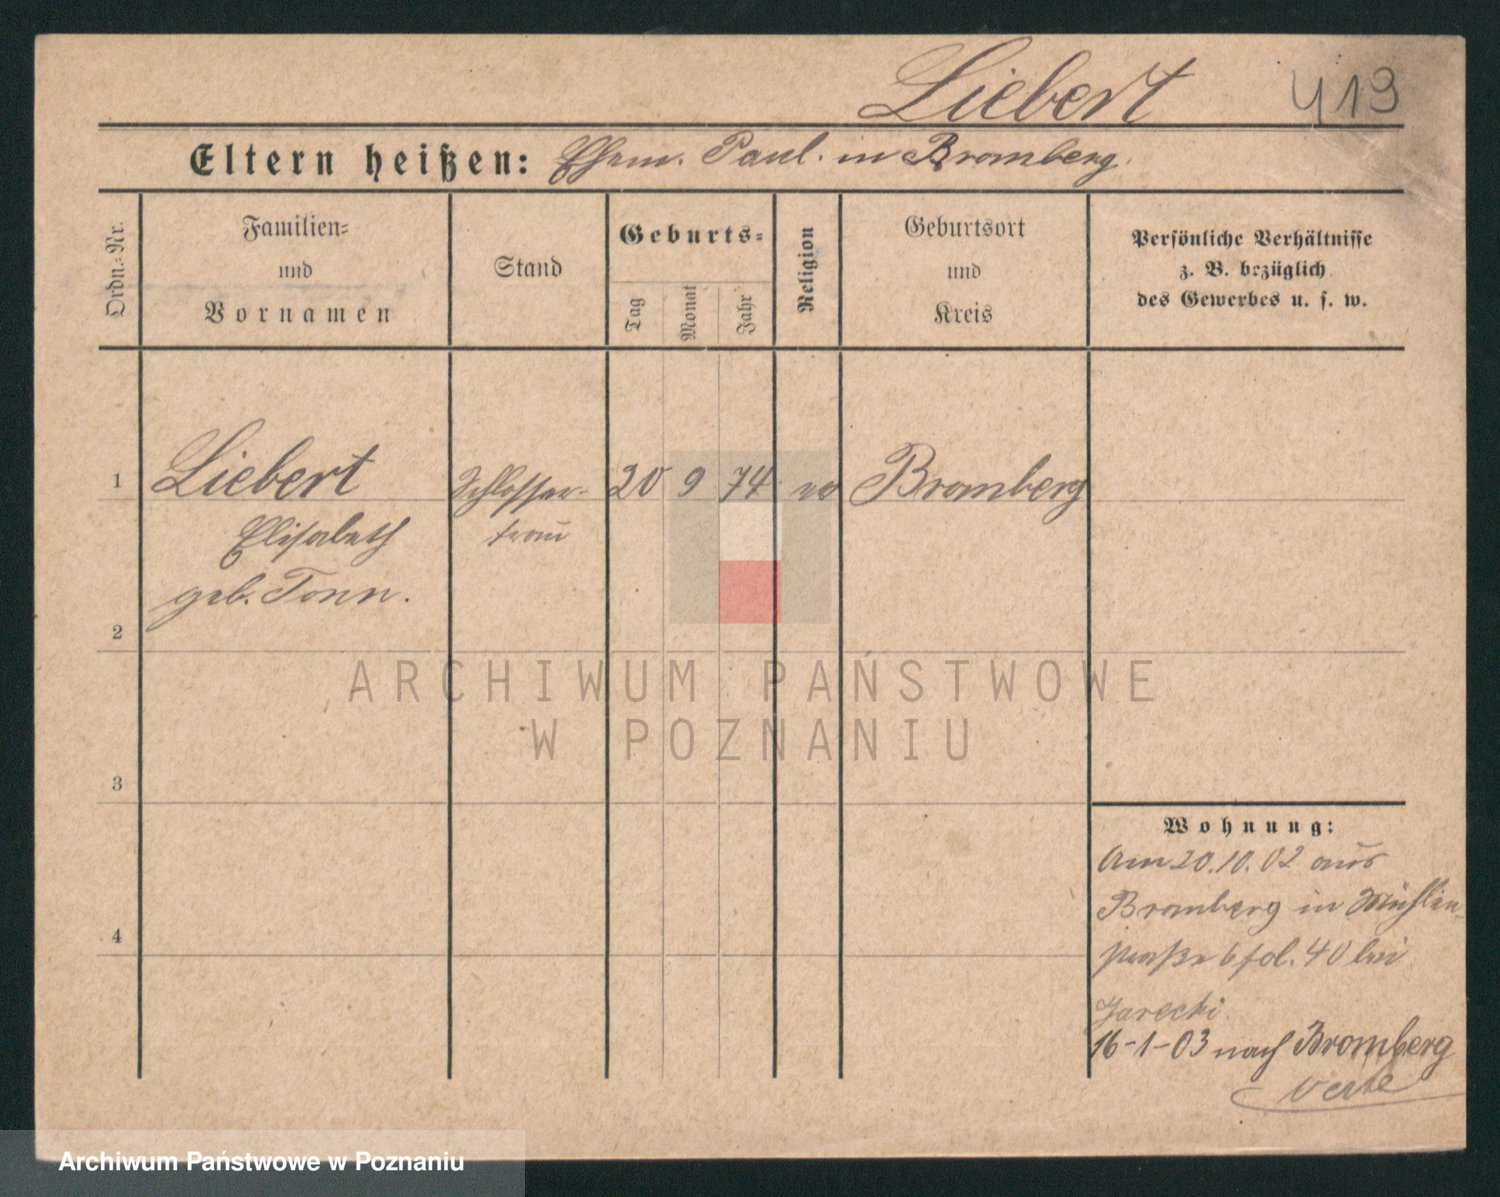 Liebert
413
Eltern heißen: Ehem. Paul. in Bromberg.
Ordn.-Nr.
Familien-
und
Vornamen
Stand
Geburts-
Tag
Monat
Jahr
Religion
Geburtsort
und
Kreis
Persönliche Verhältnisse
z. B. bezüglich
des Gewerbes u. s. w.
1 Liebert Schlosser- 20 9 74 Bromberg
Elisabeth frau
geb. Tonn.
2
3
4
Wohnung:
Am 20.10.02 aus
Bromberg in Mühlen-
straße 6 fol. 40 bei
Jarecki
16-1-03 nach Bromberg
ARCHIWUM PAŃSTWOWE
W POZNANIU
Archiwum Państwowe w Poznaniu